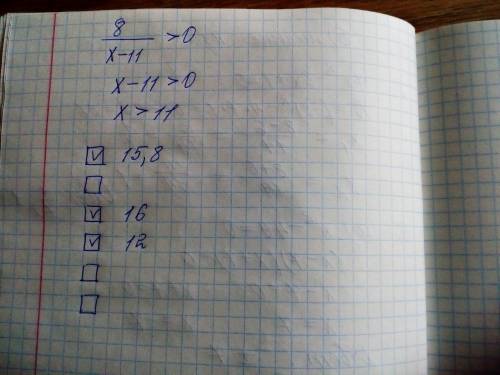 8/(x-11) >0
x-11>0
x>11
☑ 15,8
☐
☑ 16
☑ 12
☐
☐